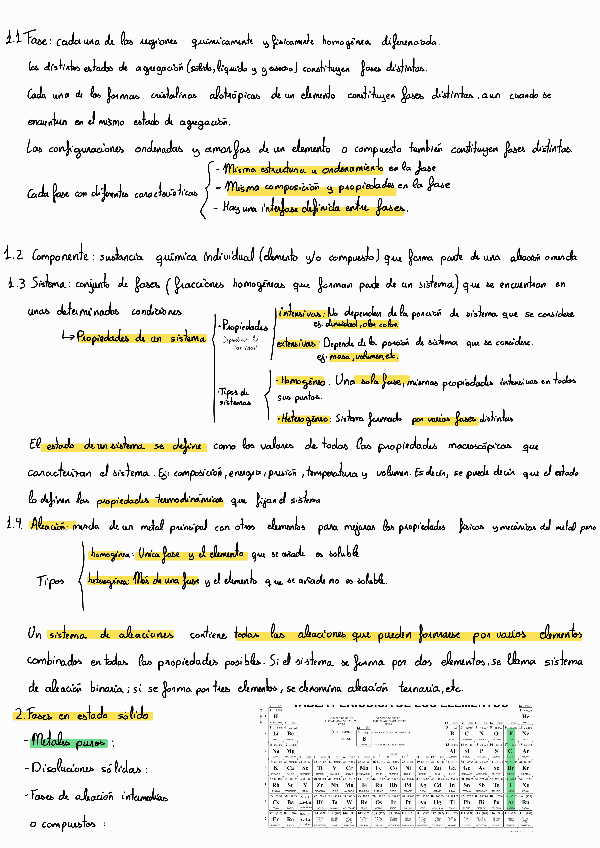 1.1 Fase: cada una de las regiones químicamente y físicamente homogénea diferenciada.
Los distintos estados de agregación (sólido, líquido y gaseoso) constituyen fases distintas.
Cada una de las formas cristalinas alotrópicas de un elemento constituyen fases distintas, aun cuando se
encuentren en el mismo estado de agregación.
Las configuraciones ordenadas y amorfas de un elemento o compuesto también constituyen fases distintas.
Cada fase con diferentes características
- Misma estructura u ordenamiento en la fase
- Misma composición y propiedades en la fase
- Hay una interfase definida entre fases.
1.2 Componente: sustancia química individual (elemento y/o compuesto) que forma parte de una aleación o mezcla
1.3 Sistema: conjunto de fases (fracciones homogéneas que forman parte de un sistema) que se encuentran en
unas determinadas condiciones
↳ Propiedades de un sistema
- Propiedades
intensivas: No dependen de la porción de sistema que se considere
ej: densidad, color
extensivas: Depende de la porción de sistema que se considere.
ej: masa, volumen, etc.
- Tipos de
sistemas
- Homogéneo: Una sola fase, mismas propiedades intensivas en todos
sus puntos.
- Heterogéneo: Sistema formado por varias fases distintas
El estado de un sistema se define como los valores de todas las propiedades macroscópicas que
caracterizan el sistema. Ej: composición, energía, presión, temperatura y volumen. Es decir, se puede decir que el estado
lo definen las propiedades termodinámicas que fijan el sistema
1.4. Aleación: mezcla de un metal principal con otros elementos para mejorar las propiedades físicas y mecánicas del metal puro
Tipos
homogénea: Única fase y el elemento que se añade es soluble
heterogénea: Más de una fase y el elemento que se añade no es soluble.
Un sistema de aleaciones contiene todas las aleaciones que pueden formarse por varios elementos
combinados en todas las propiedades posibles. Si el sistema se forma por dos elementos, se llama sistema
de aleación binaria; si se forma por tres elementos, se denomina aleación ternaria, etc.
2. Fases en estado sólido
- Metales puros:
- Disoluciones sólidas:
- Fases de aleación intermedias
o compuestos: